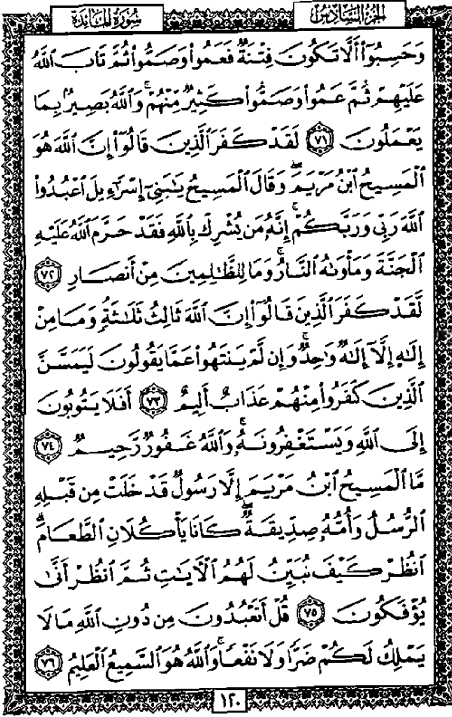 الجزء السادس سورة المائدة
وَحَسِبُوٓا۟ أَلَّا تَكُونَ فِتْنَةٌ فَعَمُوا۟ وَصَمُّوا۟ ثُمَّ تَابَ ٱللَّهُ
عَلَيْهِمْ ثُمَّ عَمُوا۟ وَصَمُّوا۟ كَثِيرٌ مِّنْهُمْ ۚ وَٱللَّهُ بَصِيرٌۢ بِمَا
يَعْمَلُونَ ٧١ لَقَدْ كَفَرَ ٱلَّذِينَ قَالُوٓا۟ إِنَّ ٱللَّهَ هُوَ
ٱلْمَسِيحُ ٱبْنُ مَرْيَمَ ۖ وَقَالَ ٱلْمَسِيحُ يَـٰبَنِىٓ إِسْرَٰٓءِيلَ ٱعْبُدُوا۟
ٱللَّهَ رَبِّى وَرَبَّكُمْ ۖ إِنَّهُۥ مَن يُشْرِكْ بِٱللَّهِ فَقَدْ حَرَّمَ ٱللَّهُ عَلَيْهِ
ٱلْجَنَّةَ وَمَأْوَىٰهُ ٱلنَّارُ ۖ وَمَا لِلظَّـٰلِمِينَ مِنْ أَنصَارٍ ٧٢
لَّقَدْ كَفَرَ ٱلَّذِينَ قَالُوٓا۟ إِنَّ ٱللَّهَ ثَالِثُ ثَلَـٰثَةٍ ۘ وَمَا مِنْ
إِلَـٰهٍ إِلَّآ إِلَـٰهٌ وَٰحِدٌ ۚ وَإِن لَّمْ يَنتَهُوا۟ عَمَّا يَقُولُونَ لَيَمَسَّنَّ
ٱلَّذِينَ كَفَرُوا۟ مِنْهُمْ عَذَابٌ أَلِيمٌ ٧٣ أَفَلَا يَتُوبُونَ
إِلَى ٱللَّهِ وَيَسْتَغْفِرُونَهُۥ ۚ وَٱللَّهُ غَفُورٌ رَّحِيمٌ ٧٤
مَّا ٱلْمَسِيحُ ٱبْنُ مَرْيَمَ إِلَّا رَسُولٌ قَدْ خَلَتْ مِن قَبْلِهِ
ٱلرُّسُلُ وَأُمُّهُۥ صِدِّيقَةٌ ۖ كَانَا يَأْكُلَانِ ٱلطَّعَامَ ۗ
ٱنظُرْ كَيْفَ نُبَيِّنُ لَهُمُ ٱلْـَٔايَـٰتِ ثُمَّ ٱنظُرْ أَنَّىٰ
يُؤْفَكُونَ ٧٥ قُلْ أَتَعْبُدُونَ مِن دُونِ ٱللَّهِ مَا لَا
يَمْلِكُ لَكُمْ ضَرًّا وَلَا نَفْعًا ۚ وَٱللَّهُ هُوَ ٱلسَّمِيعُ ٱلْعَلِيمُ ٧٦
١٢٠